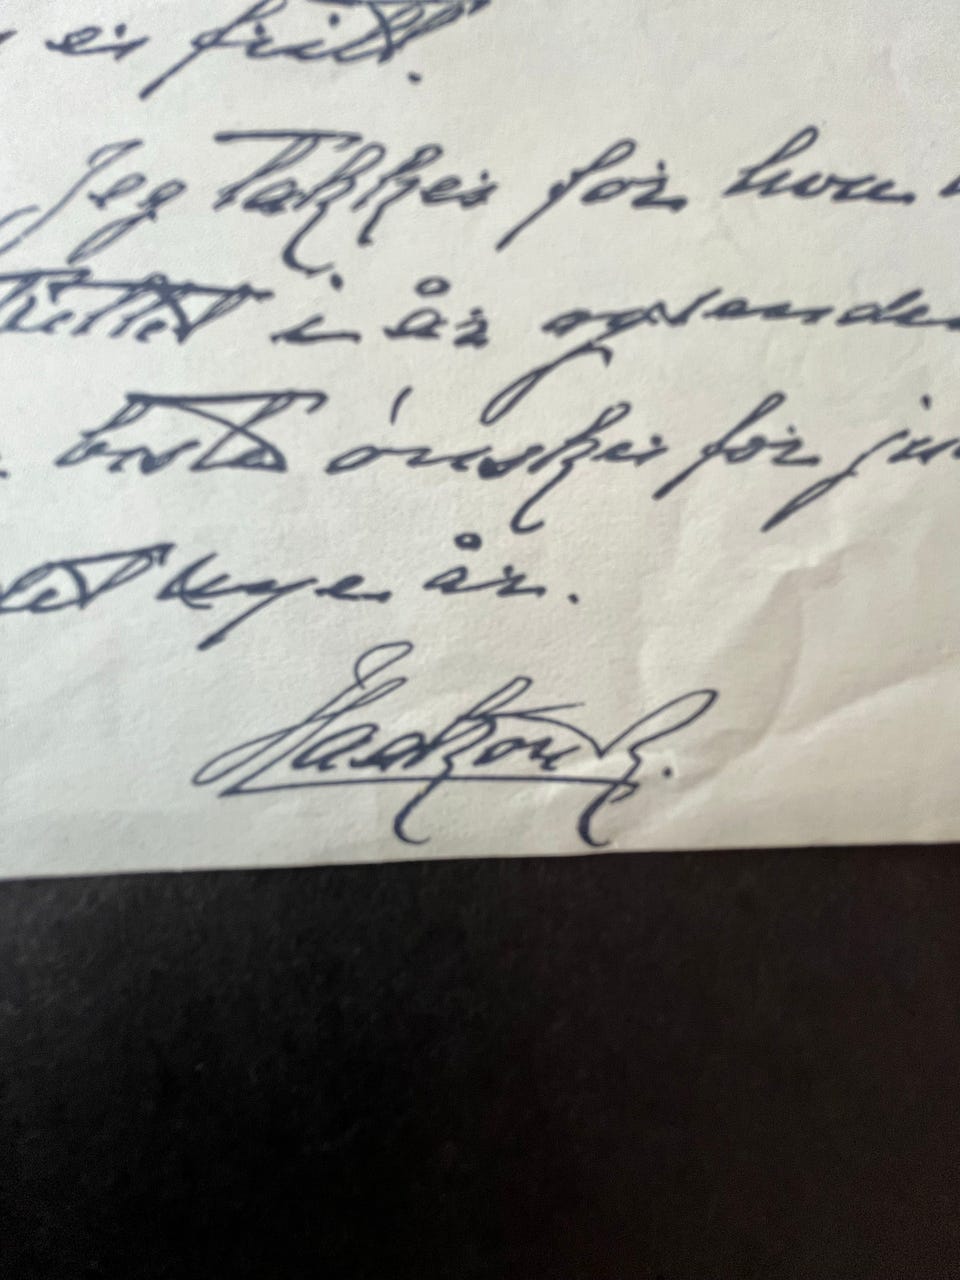 er fritt.
Jeg takker for hva
i år og sender
beste ønsker for
nye år.
Haakon R.